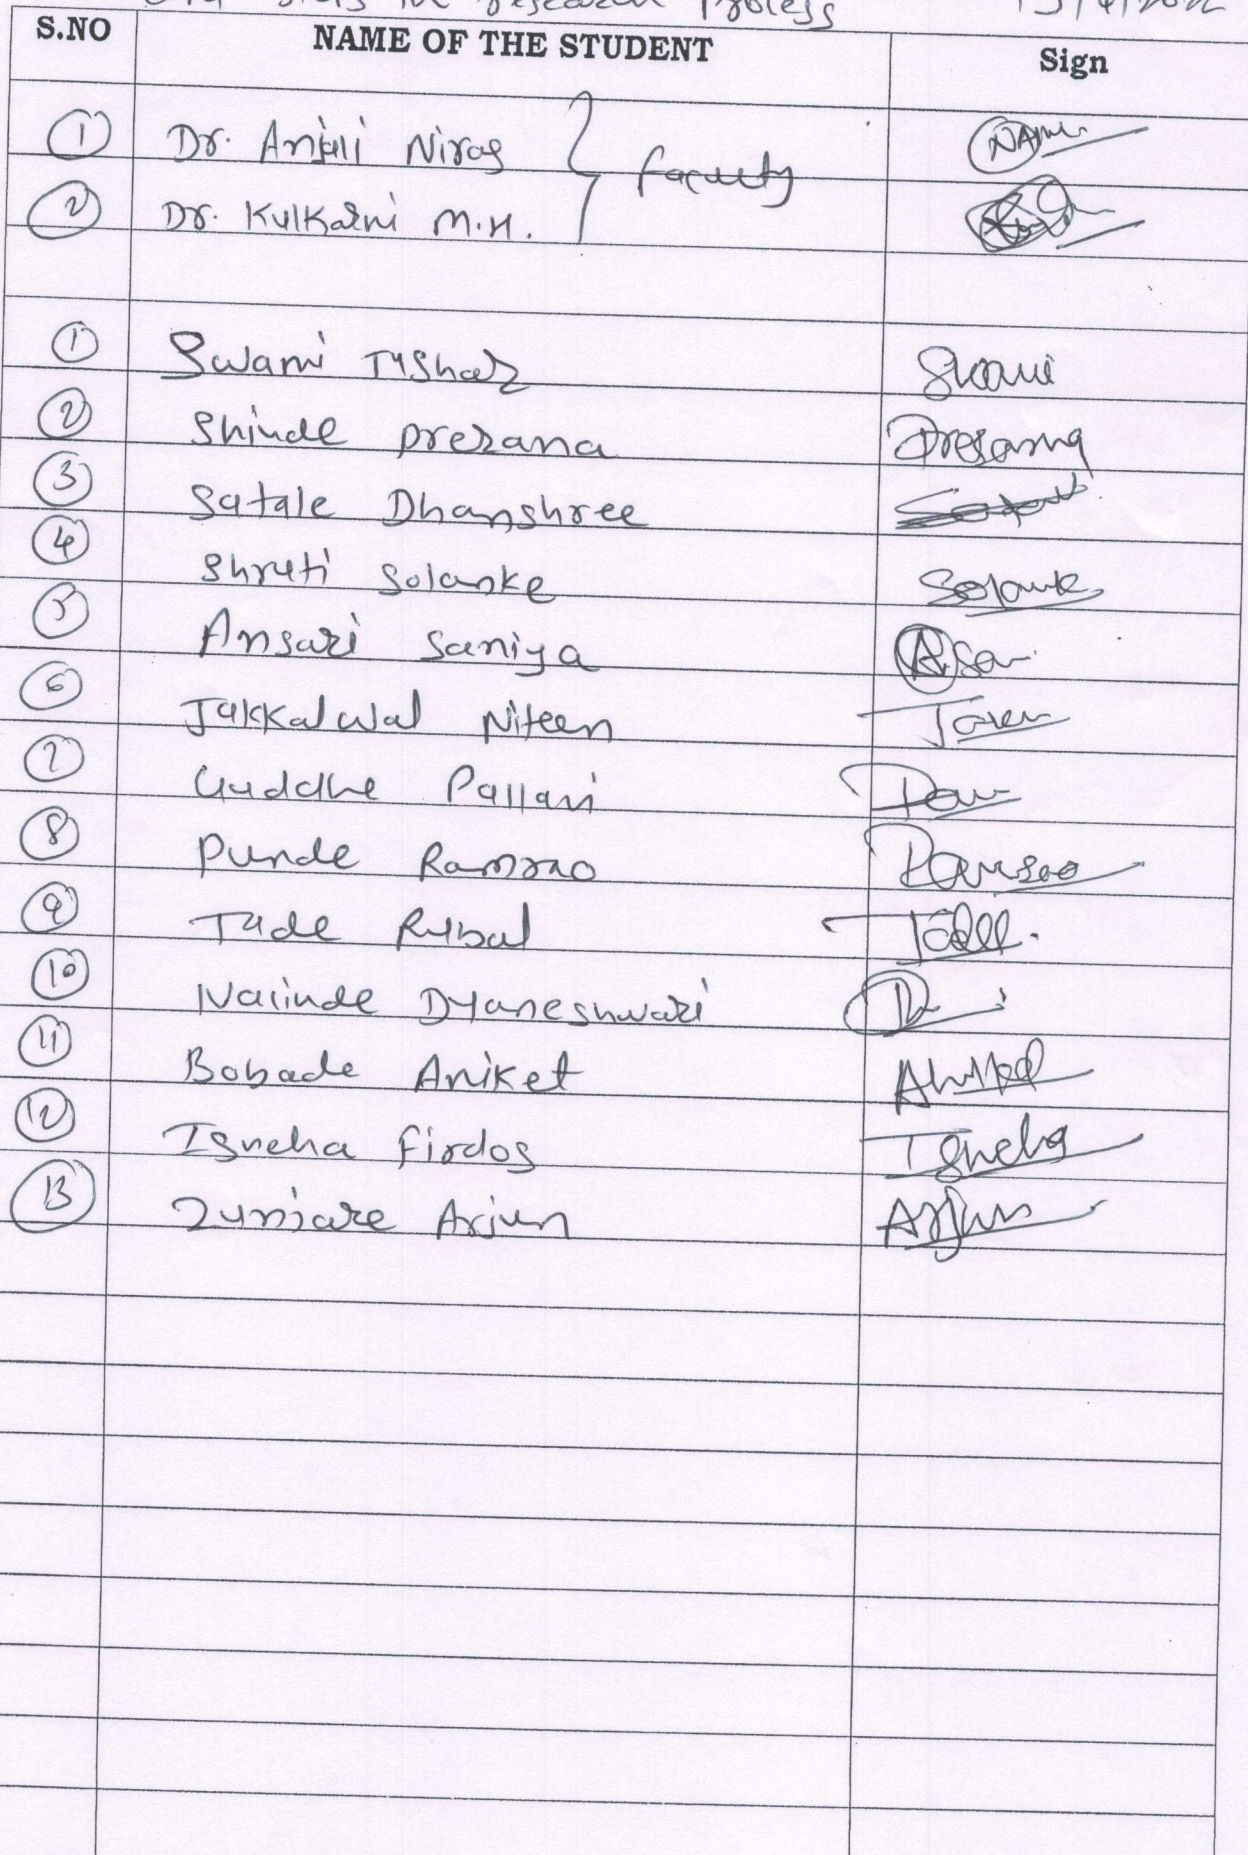 in research Process
S.NO NAME OF THE STUDENT Sign
1 Dr. Anjali Niras
faculty
2 Dr. Kulkarni M.H.
1 Swami Tushar Swami
2 Shinde prerana Prerana
3 Satale Dhanshree
4 Shruti Solanke Solanke
5 Ansari Saniya
6 Jakkalwal Niteen
7 Guddhe Pallavi
8 Punde Ramrao Ramrao
9 Tade Rupal
10 Narinde Dyaneshwari
11 Bobade Aniket
12 Isneha Firdos Isneha
13 Zunjare Arjun Arjun